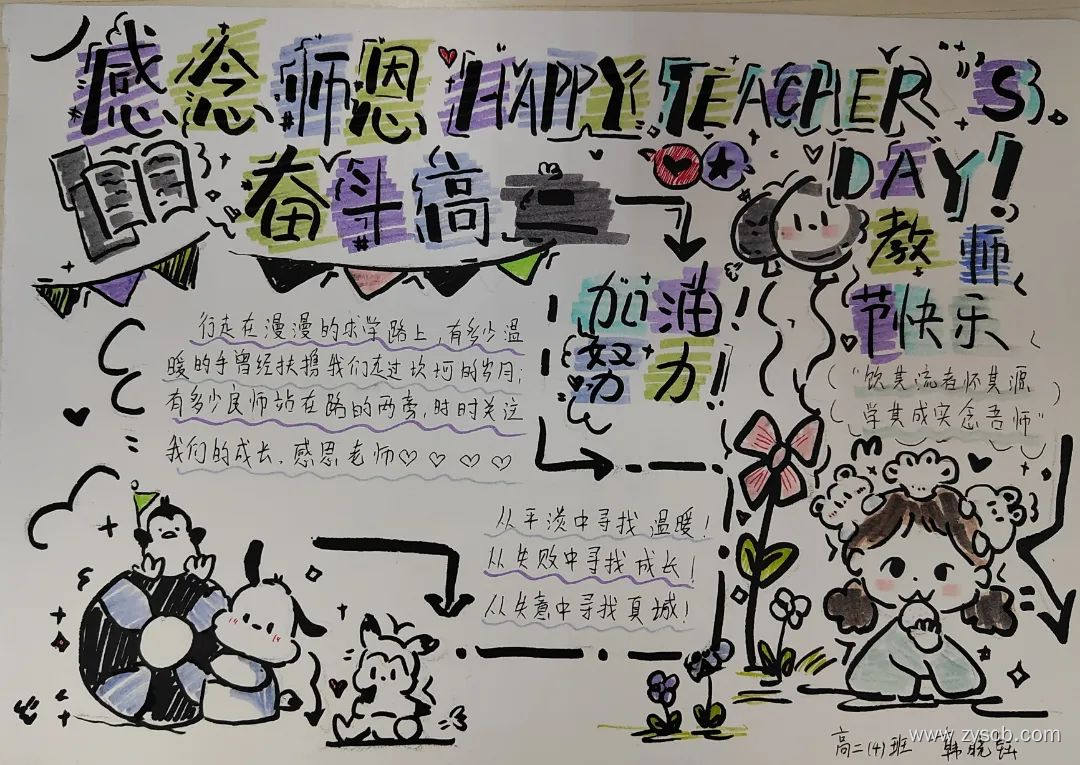 感念师恩 HAPPY TEACHER'S
DAY!
奋斗高
教师
节快乐
加油!
努力!
行走在漫漫的求学路上,有多少温
暖的手曾经扶携我们走过坎坷的岁月;
有多少良师站在路的两旁,时时关注
我们的成长.感恩老师♡♡♡♡
"饮其流者怀其源
学其成实念吾师"
从平淡中寻找温暖!
从失败中寻找成长!
从失意中寻找真诚!
高二(4)班 韩晓
www.zyscb.com